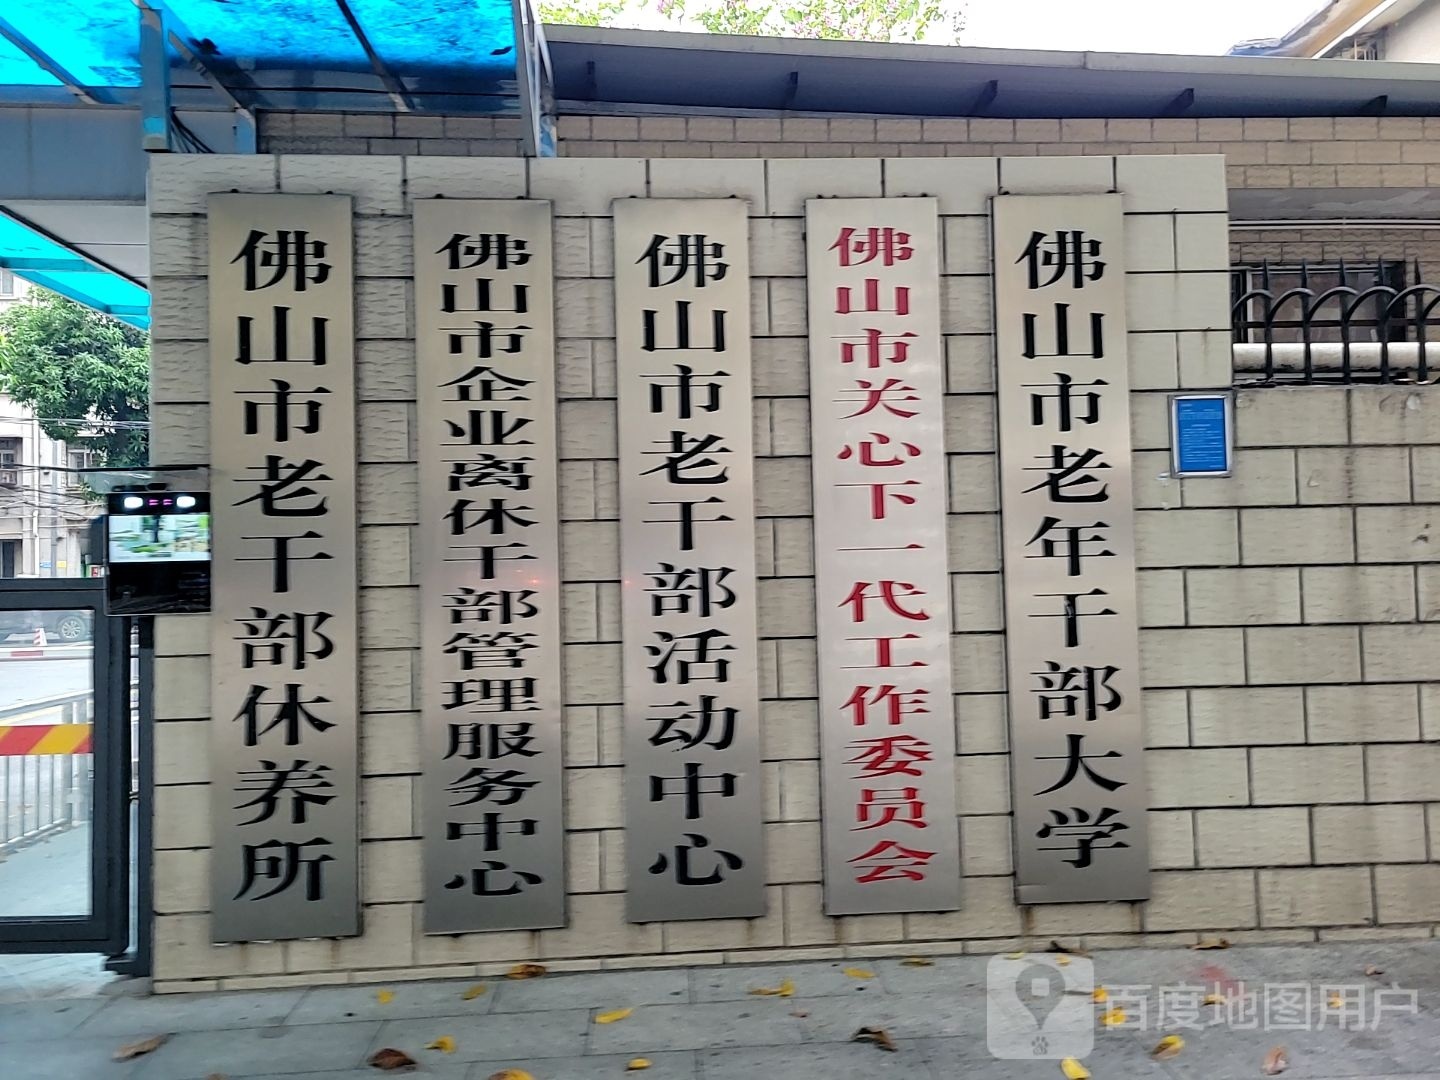 佛山市老干部休养所
佛山市企业离休干部管理服务中心
佛山市老干部活动中心
佛山市关心下一代工作委员会
佛山市老年干部大学
百度地图用户